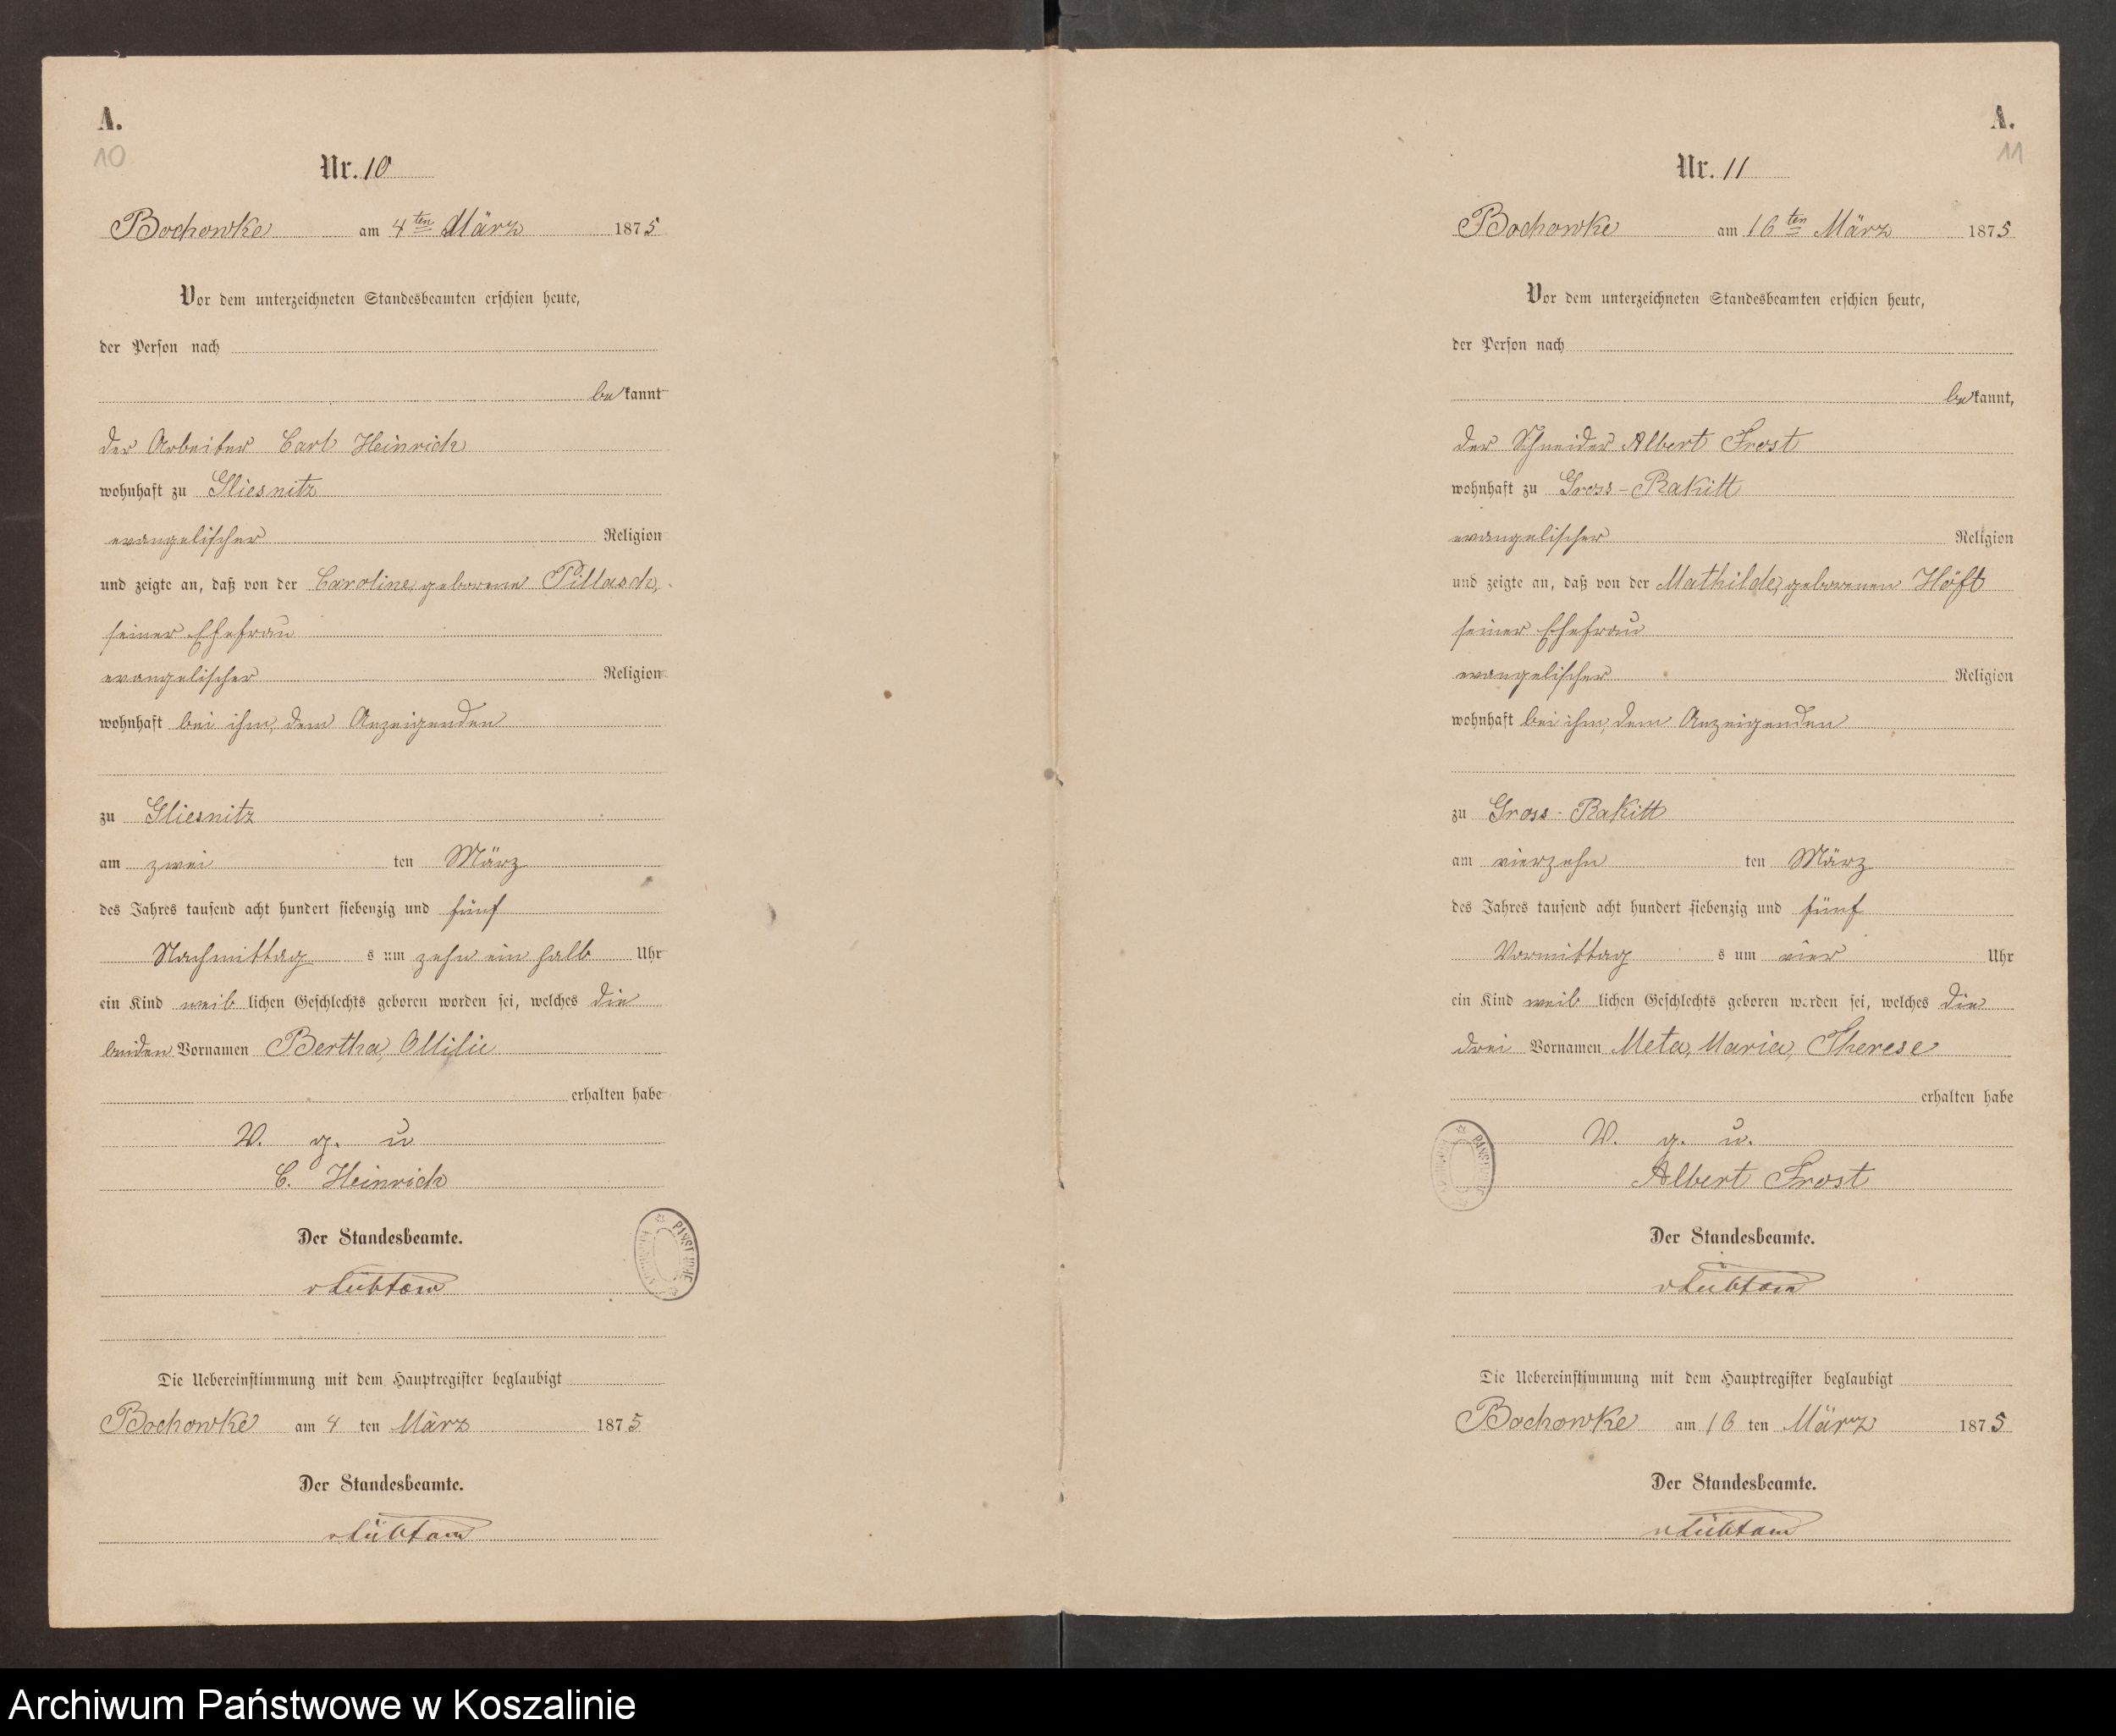 A.
10
Nr. 10
Bochowke am 4ten März 1875
Vor dem unterzeichneten Standesbeamten erschien heute,
der Person nach
bekannt
der Arbeiter Carl Heinrich
wohnhaft zu Gliesnitz
evangelischer Religion
und zeigte an, daß von der Caroline, geborene Pillasch,
seiner Ehefrau
evangelischer Religion
wohnhaft bei ihm, dem Anzeigenden
zu Gliesnitz
am zwei ten März
des Jahres tausend acht hundert siebenzig und fünf
Nachmittag s um zehn ein halb Uhr
ein Kind weib lichen Geschlechts geboren worden sei, welches die
beiden Vornamen Bertha, Ottilie
erhalten habe
V. g. u
C. Heinrich
Der Standesbeamte.
vLübtow
Die Uebereinstimmung mit dem Hauptregister beglaubigt
Bochowke am 4 ten März 1875
Der Standesbeamte.
vLübtow
A.
11
Nr. 11
Bochowke am 16ten März 1875
Vor dem unterzeichneten Standesbeamten erschien heute,
der Person nach
bekannt,
der Schneider Albert Frost
wohnhaft zu Gross-Rakitt
evangelischer Religion
und zeigte an, daß von der Mathilde, geborenen Höft
seiner Ehefrau
evangelischer Religion
wohnhaft bei ihm, dem Anzeigenden
zu Gross-Rakitt
am vierzehn ten März
des Jahres tausend acht hundert siebenzig und fünf
Vormittag s um vier Uhr
ein Kind weib lichen Geschlechts geboren worden sei, welches die
drei Vornamen Meta, Maria, Therese
erhalten habe
V. g. u.
Albert Frost
Der Standesbeamte.
vLübtow
Die Uebereinstimmung mit dem Hauptregister beglaubigt
Bochowke am 16 ten März 1875
Der Standesbeamte.
vLübtow
Archiwum Państwowe w Koszalinie